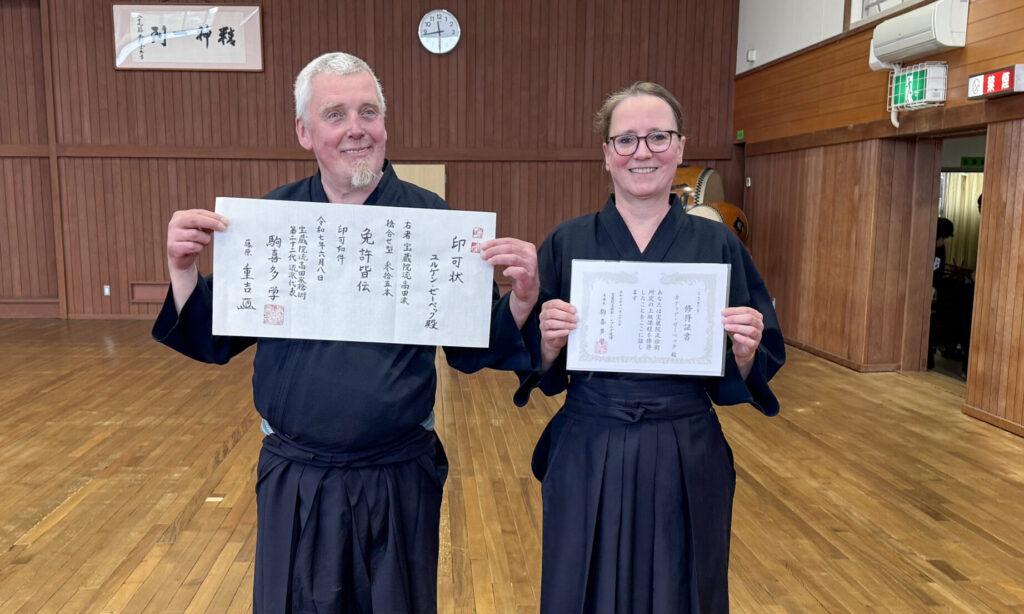 鞍神一剣
印可状
ユルゲン・ゼーベック殿
右者 宝蔵院流高田派
槍合せ型 参拾五本
免許皆伝
印可如件
令和七年六月八日
宝蔵院流高田派槍術
第二十二代流派代表
駒喜多 学
藤原 重吉
修得証書
カティア・ゼーベック 殿
あなたは宝蔵院流槍術
所定の上級課程を修得
したことをここに証し
ます
駒喜多 学
禁煙